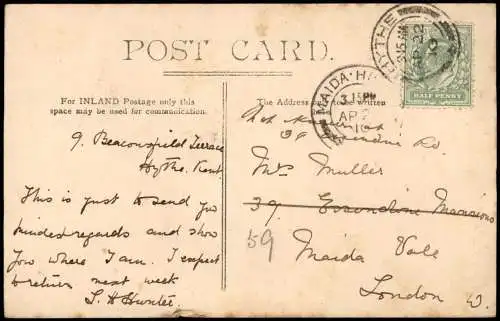 POST CARD.
For INLAND Postage only this
space may be used for communication.
The Address only to be written
9. Beaconsfield Terrace
Hythe. Kent.
This is just to send you
kindest regards and show
you where I am. I expect
to return next week
S. H. Hunter.
Rd.
Mrs Muller
39. Essendine Mansions
59
Maida Vale
London W.
HYTHE
MAIDA·H
3.15PM
AP
10
HALF PENNY